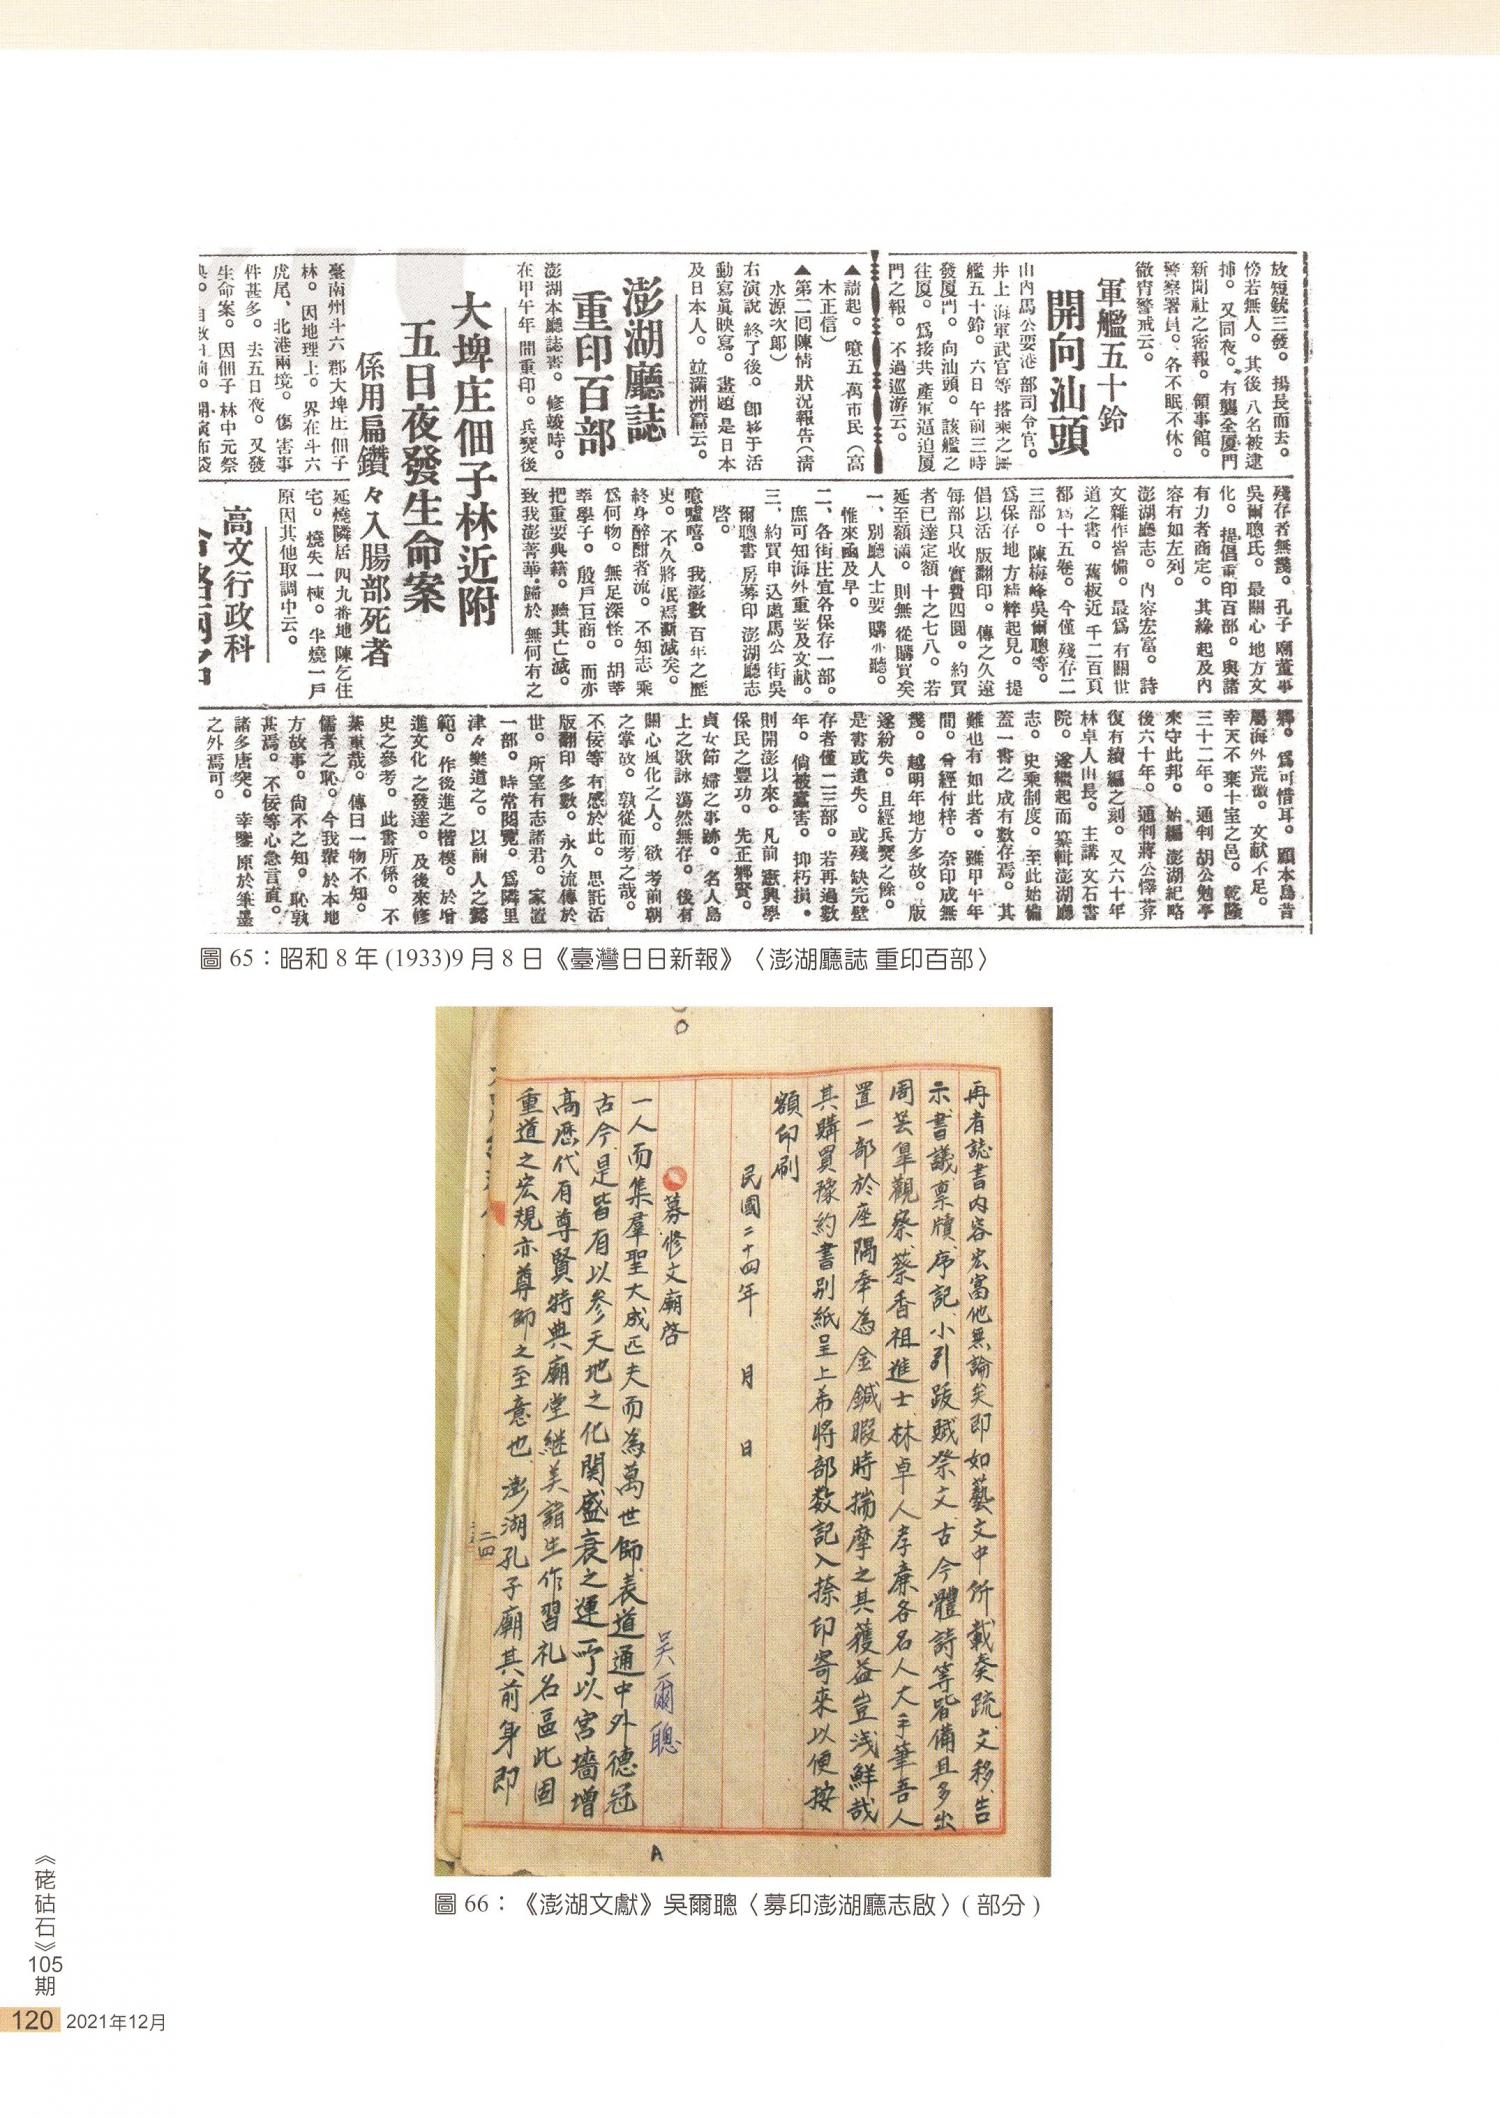 放短銃三發。揚長而去。
傍若無人。其後八名被逮
捕。又同夜。有襲全厦門
新聞社之密報。領事館。
警察署員。各不眠不休。
徹宵警戒云。
軍艦五十鈴
開向汕頭
山內馬公要港部司令官。
井上海軍武官等搭乘之軍
艦五十鈴。六日午前三時
發厦門。向汕頭。該艦之
往厦。爲接共產軍逼迫厦
門之報。不過巡游云。
▲請起。噫五萬市民(高
木正信)
▲第二回陳情狀況報告(淸
水源次郎)
右演說終了後。卽移于活
動寫眞映寫。畫題是日本
及日本人。竝滿洲篇云。
澎湖廳誌
重印百部
澎湖本廳誌書。修竣時。
在甲午年間重印。兵燹後
殘存者無幾。孔子廟董事
吳爾聰氏。最關心地方文
化。提倡重印百部。與諸
有力者商定。其緣起及內
容有如左列。
澎湖廳志。內容宏富。詩
文雜作皆備。最爲有關世
道之書。舊板近千二百頁
都爲十五卷。今僅殘存二
三部。陳梅峰吳爾聰等。
爲保存地方精粹起見。提
倡以活版翻印。傳之久遠
每部只收實費四圓。約買
者已達定額十之七八。若
延至額滿。則無從購買矣
一、別廳人士要購亦聽。
惟來函及早。
二、各街庄宜各保存一部。
庶可知海外重要及文獻。
三、約買申込處馬公街吳
爾聰書房募印澎湖廳志
啓。
噫嘘嘻。我澎數百年之歷
史。不久將泯焉漸滅矣。
終身醉酣者流。不知志乘
爲何物。無足深怪。胡莘
莘學子。殷戶巨商。而亦
把重要典籍。聽其亡滅。
致我澎菁華。歸於無何有之
鄉。爲可惜耳。顧本島昔
屬海外荒徼。文献不足。
幸天不棄十室之邑。乾隆
三十二年。通判胡公勉亭
來守此邦。始編澎湖紀略
後六十年。通判蔣公懌葊
復有續編之刻。又六十年
林卓人山長。主講文石書
院。遂繼起而纂輯澎湖廳
志。史乘制度。至此始備
蓋一書之成有數存焉。其
難也有如此者。雖甲午年
間。曾經付梓。奈印成無
幾。越明年地方多故。版
遂紛失。且經兵燹之餘。
是書或遺失。或殘缺完璧
存者僅二三部。若再過數
年。倘被蠹害。抑朽損。
則開澎以來。凡前憲興學
保民之豐功。先正鄉賢。
貞女節婦之事跡。名人島
上之歌詠蕩然無存。後有
關心風化之人。欲考前朝
之掌故。孰從而考之哉。
不佞等有感於此。思託活
版翻印多數。永久流傳於
世。所望有志諸君。家置
一部。時常閱覽。爲隣里
津々樂道之。以前人之懿
範。作後進之楷模。於增
進文化之發達。及後來修
史之參考。此書所係。不
綦重哉。傳曰一物不知。
儒者之恥。今我輩於本地
方故事。尙不之知。恥孰
甚焉。不佞等心急言直。
諸多唐突。幸鑒原於筆墨
之外焉可。
大埤庄佃子林近附
五日夜發生命案
係用扁鑽々入腸部死者
臺南州斗六郡大埤庄佃子
林。因地理上。界在斗六
虎尾、北港兩境。傷害事
件甚多。去五日夜。又發
生命案。因佃子林中元祭
延燒隣居四九番地陳乞住
宅。燒失一棟。半燒一戶
原因其他取調中云。
高文行政科
圖 65：昭和 8 年 (1933)9 月 8 日《臺灣日日新報》〈澎湖廳誌 重印百部〉
再者誌書內容宏富他無論矣即如藝文中所載奏疏、文移、告
示、書議、禀牘、序記、小引、跋、賦、祭文、古今體詩等皆備且多出
周芸皐觀察、蔡香祖進士、林卓人孝廉各名人大手筆吾人
置一部於座隅奉為金鍼暇時揣摩之其獲益豈浅鮮哉
其購買豫約書別紙呈上希將部数記入捺印寄來以便按
額印刷
民國二十四年 月 日
募修文廟啓
吳爾聰
一人而集羣聖大成匹夫而為萬世師表道通中外德冠
古今是皆有以參天地之化関盛衰之運所以宮墻增
高歷代有尊賢特典廟堂継美諸生作習礼名區此固
重道之宏規亦尊師之至意也澎湖孔子廟其前身即
二四
A
圖 66：《澎湖文獻》吳爾聰〈募印澎湖廳志啟〉( 部分 )
《硓𥑮石》105期
120 2021年12月